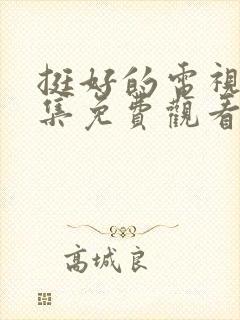 挺好的電視
集免費觀看
高城良